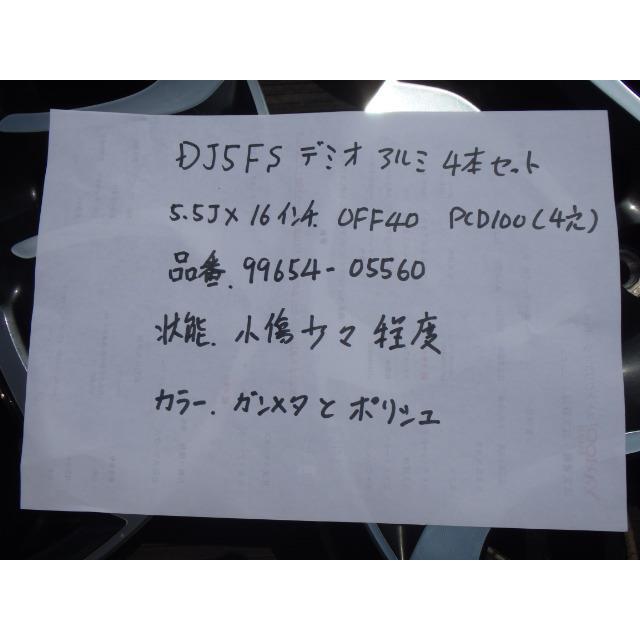 DJ5FS デミオ アルミ 4本セット
5.5J×16インチ. OFF40 PCD100(4穴)
品番. 99654-05560
状態. 小傷少々程度
カラー. ガンメタとポリシュ